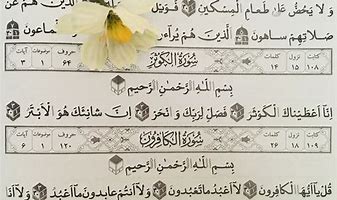 وَلَا يَحُضُّ عَلَىٰ طَعَامِ الْمِسْكِينِ فَوَيْلٌ هُمْ عَنْ
صَلَاتِهِمْ سَاهُونَ الَّذِينَ هُمْ يُرَاءُونَ
نزول سُورَةُ الْكَوْثَرِ حروف موضوعات آيات
١٠٨ ١٥ ١٤ ٦٤ ١ ٣
بِسْمِ اللَّهِ الرَّحْمَٰنِ الرَّحِيمِ
إِنَّا أَعْطَيْنَاكَ الْكَوْثَرَ فَصَلِّ لِرَبِّكَ وَانْحَرْ إِنَّ شَانِئَكَ هُوَ الْأَبْتَرُ
نزول سُورَةُ الْكَافِرُونَ حروف موضوعات آيات
١٠٩ ١٨ ٢٦ ١٢٠ ١ ٦
بِسْمِ اللَّهِ الرَّحْمَٰنِ الرَّحِيمِ
قُلْ يَا أَيُّهَا الْكَافِرُونَ لَا أَعْبُدُ مَا تَعْبُدُونَ وَلَا أَنْتُمْ عَابِدُونَ مَا أَعْبُدُ وَلَا أَنَا